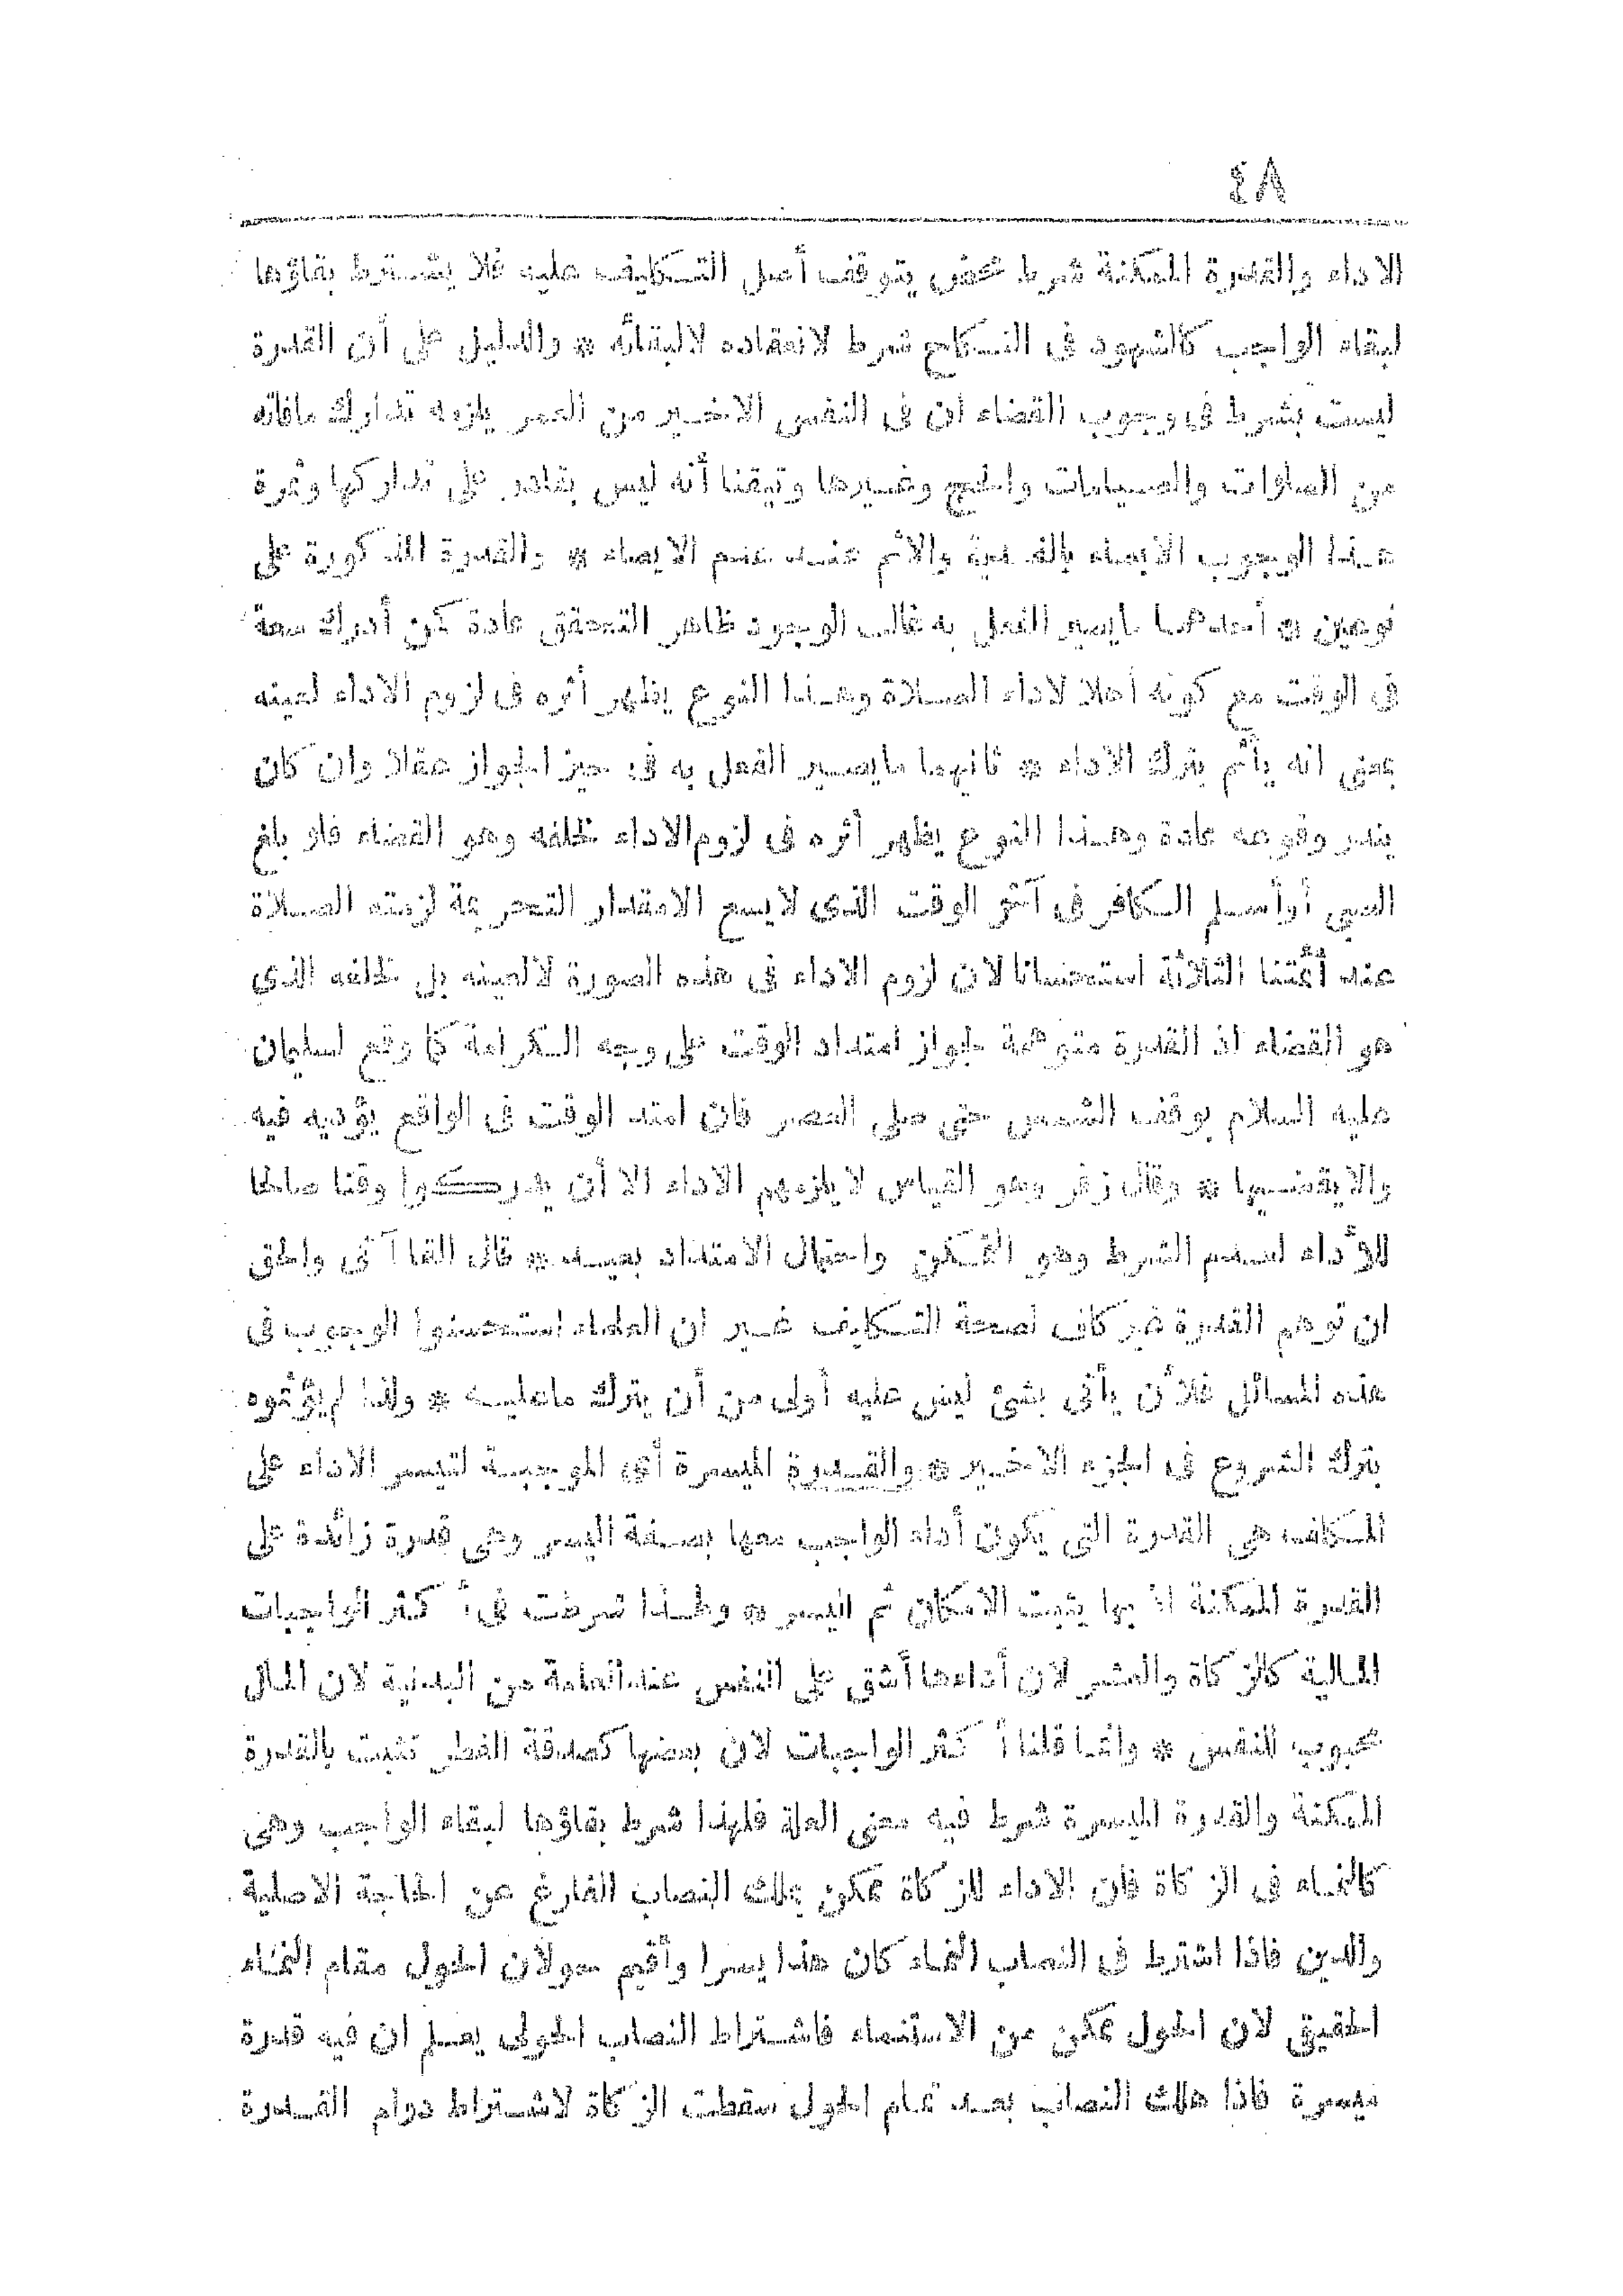 ٤٨
الاداء والقدرة الممكنة شرط محض يتوقف أصل التكليف عليه فلا يشترط بقاؤها
لبقاء الواجب كالشهود فى النكاح شرط لانعقاده لالبقائه * والدليل على أن القدرة
ليست بشرط فى وجوب القضاء ان فى النفس الاخير من العمر يلزمه تدارك مافاته
من الصلوات والصيامات والحج وغيرها وتيقنا أنه ليس بقادر على تداركها وثمرة
هذا الوجوب الايصاء بالفدية والاثم عند عدم الايصاء * والقدرة المذكورة على
نوعين * أحدهما مايصير الفعل به غالب الوجود ظاهر التحقق عادة كمن أدرك سعة
فى الوقت مع كونه أهلا لاداء الصلاة وهذا النوع يظهر أثره فى لزوم الاداء لعينه
بمعنى انه يأثم بترك الاداء * ثانيهما مايصير الفعل به فى حيز الجواز عقلا وان كان
يندر وقوعه عادة وهذا النوع يظهر أثره فى لزوم الاداء لخلفه وهو القضاء فلو بلغ
الصبي أو أسلم الكافر فى آخر الوقت الذى لايسع الامقدار التحريمة لزمته الصلاة
عند أئمتنا الثلاثة استحسانا لان لزوم الاداء فى هذه الصورة لالعينه بل لخلفه الذى
هو القضاء اذ القدرة متوهمة لجواز امتداد الوقت على وجه الكرامة كما وقع لسليمان
عليه السلام بوقف الشمس حتى صلى العصر فان امتد الوقت فى الواقع يؤديه فيه
والايقضيها * وقال زفر وهو القياس لايلزمهم الاداء الا أن يدركوا وقتا صالحا
للأداء لعدم الشرط وهو التمكن واحتمال الامتداد بعيد * قال القاآنى والحق
ان توهم القدرة غير كاف لصحة التكليف غير ان العلماء استحسنوا الوجوب فى
هذه المسائل فلأن يأتى بشئ ليس عليه أولى من أن يترك ماعليه * ولذا لم يؤثموه
بترك الشروع فى الجزء الاخير * والقدرة الميسرة أى الموجبة لتيسر الاداء على
المكلف هى القدرة التى يكون أداء الواجب معها بصفة اليسر وهى قدرة زائدة على
القدرة الممكنة اذ بها يثبت الامكان ثم اليسر * ولهذا شرطت فى أكثر الواجبات
المالية كالزكاة والعشر لان أداءها أشق على النفس عند العامة من البدنية لان المال
محبوب للنفس * وانما قلنا أكثر الواجبات لان بعضها كصدقة الفطر تثبت بالقدرة
الممكنة والقدرة الميسرة شرط فيه معنى العلة فلهذا شرط بقاؤها لبقاء الواجب وهى
كالنماء فى الزكاة فان الاداء للزكاة ممكن بملك النصاب الفارغ عن الحاجة الاصلية
والدين فاذا اشترط فى النصاب النماء كان هذا يسرا وأقيم حولان الحول مقام النماء
الحقيقى لان الحول ممكن من الاستنماء فاشتراط النصاب الحولى يعلم ان فيه قدرة
ميسرة فاذا هلك النصاب بعد تمام الحول سقطت الزكاة لاشتراط دوام القدرة